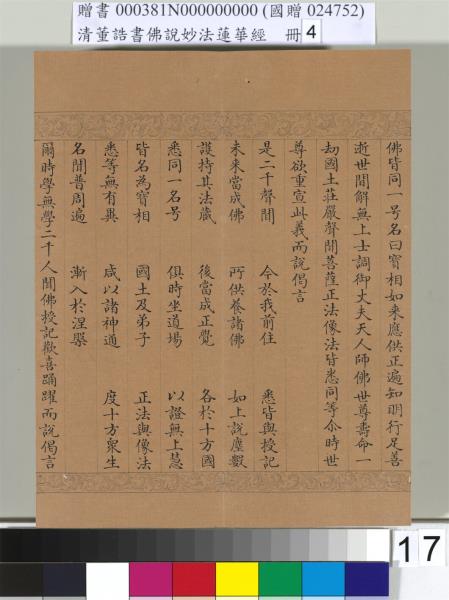 贈書 000381N000000000 (國贈 024752)
清董誥書佛說妙法蓮華經 冊 4
佛皆同一号名曰寶相如来應供正遍知明行足善
逝世間解無上士調御丈夫天人師佛世尊壽命一
劫國土莊嚴聲聞菩薩正法像法皆悉同等尒時世
尊欲重宣此義而說偈言
是二千聲聞 今於我前住 悉皆與授記
未来當成佛 所供養諸佛 如上說塵數
護持其法藏 後當成正覺 各於十方國
悉同一名号 俱時坐道場 以證無上慧
皆名為寶相 國土及弟子 正法與像法
悉等無有異 咸以諸神通 度十方衆生
名聞普周遍 漸入於涅槃
爾時學無學二千人聞佛授記歡喜踊躍而說偈言
17